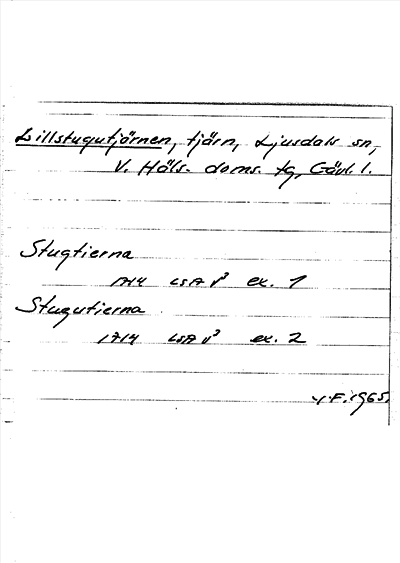 Lillstugutjörnen, tjärn, Ljusdals sn,
V. Häls. doms. tg, Gävl. l.
Stugtierna
1714 LSA V³ ex. 1
Stugutierna
1714 LSA V³ ex. 2
F. 1965.